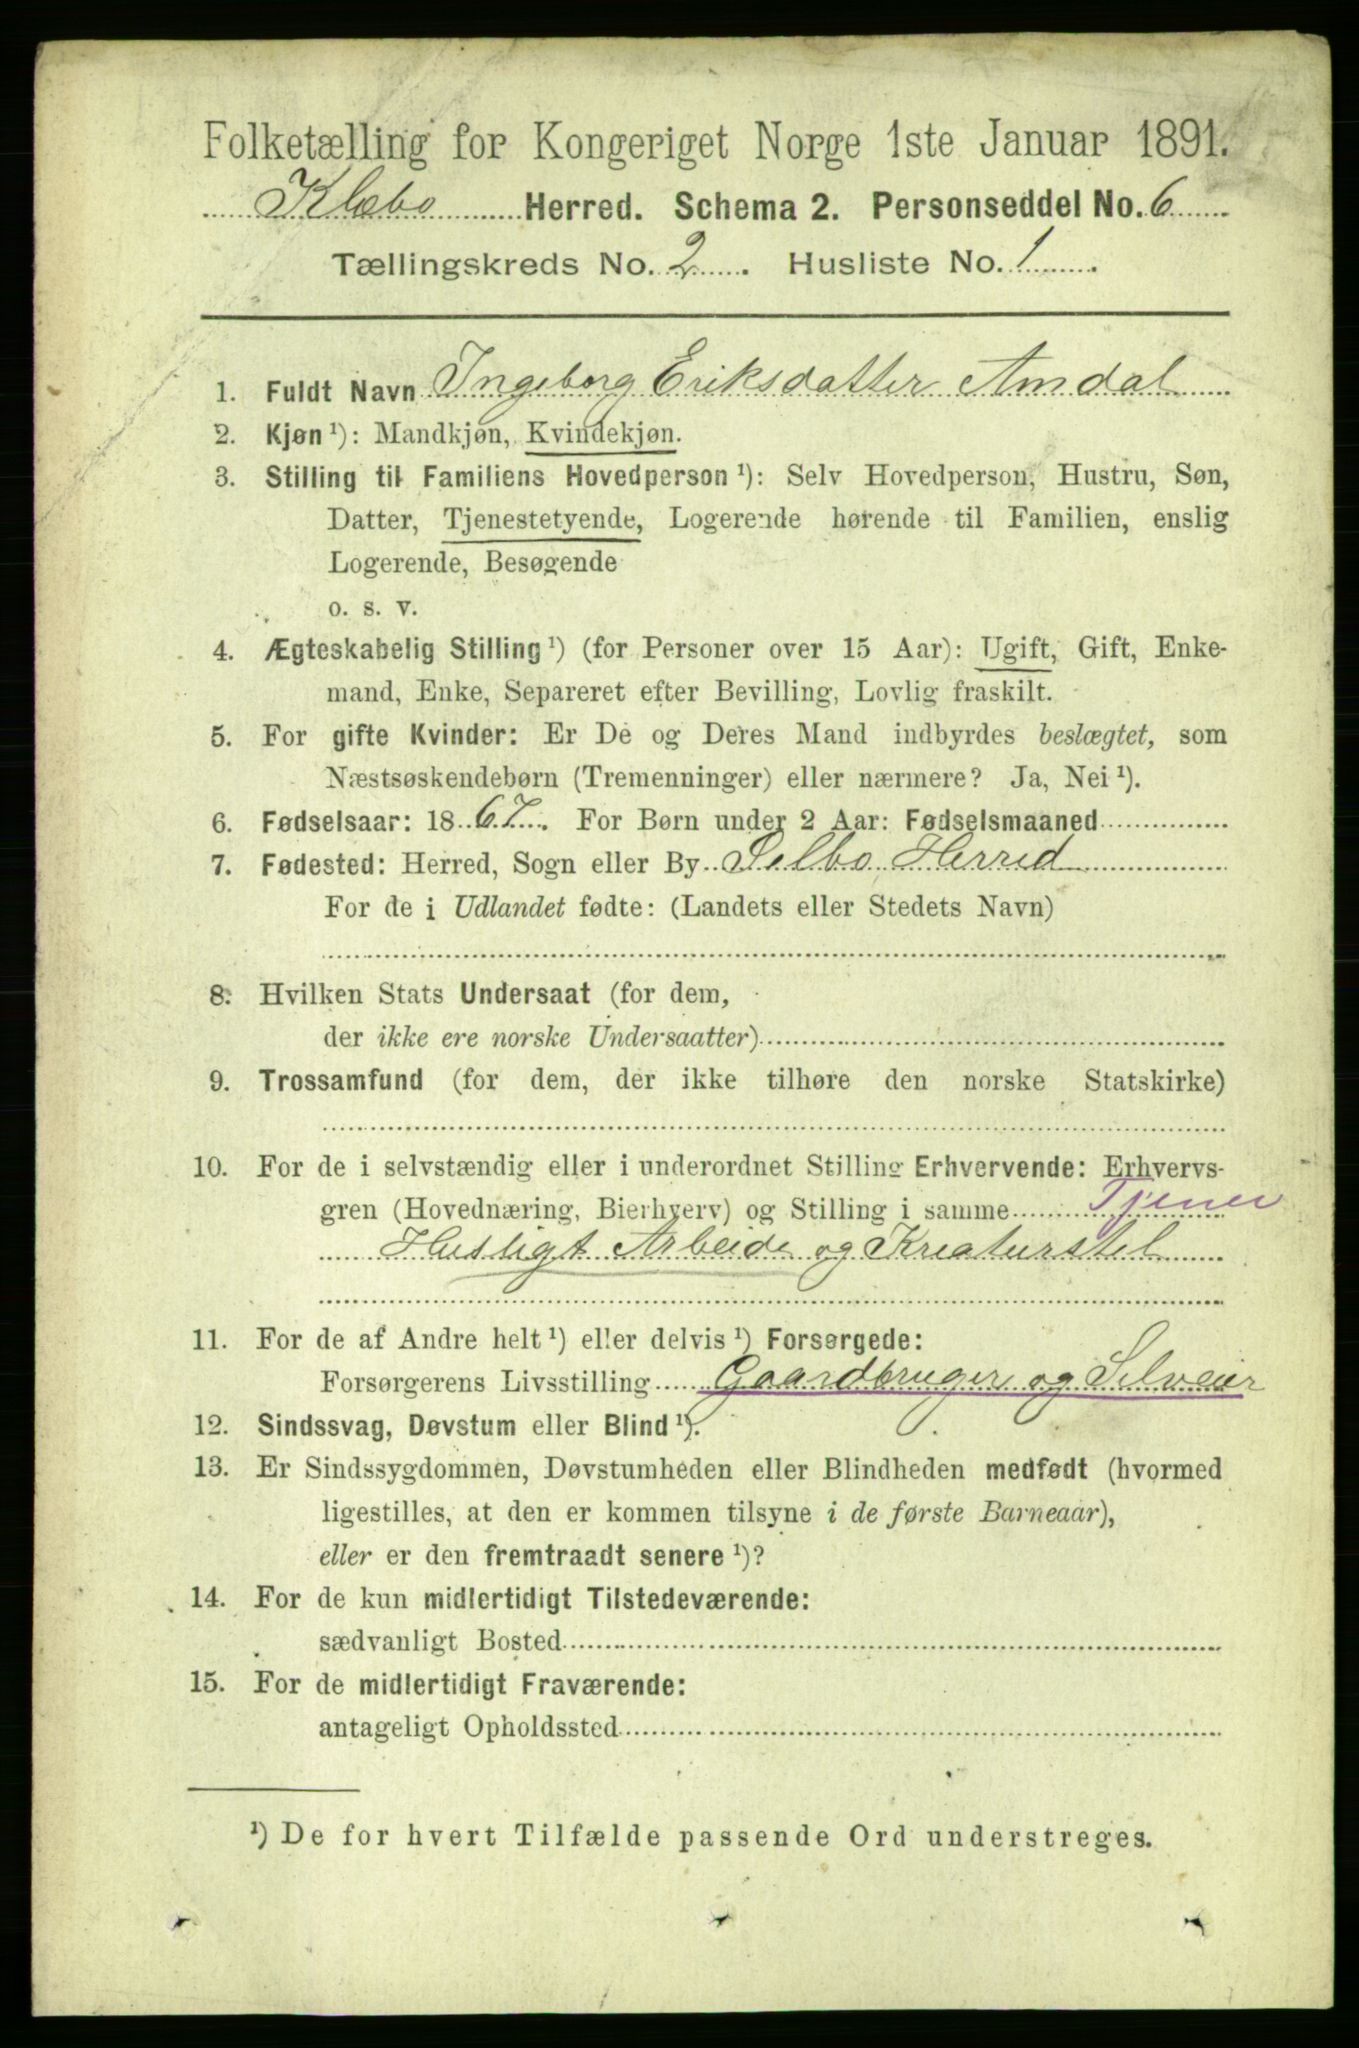 Folketælling for Kongeriget Norge 1ste Januar 1891.
Klæbo Herred. Schema 2. Personseddel No. 6
Tællingskreds No. 2. Husliste No. 1.
1. Fuldt Navn Ingeborg Eriksdatter Amdal
2. Kjøn ¹): Mandkjøn, Kvindekjøn.
3. Stilling til Familiens Hovedperson ¹): Selv Hovedperson, Hustru, Søn,
Datter, Tjenestetyende, Logerende hørende til Familien, enslig
Logerende, Besøgende
o. s. v.
4. Ægteskabelig Stilling ¹) (for Personer over 15 Aar): Ugift, Gift, Enke-
mand, Enke, Separeret efter Bevilling, Lovlig fraskilt.
5. For gifte Kvinder: Er De og Deres Mand indbyrdes beslægtet, som
Næstsøskendebørn (Tremenninger) eller nærmere? Ja, Nei ¹).
6. Fødselsaar: 1867. For Børn under 2 Aar: Fødselsmaaned
7. Fødested: Herred, Sogn eller By Selbo Herred
For de i Udlandet fødte: (Landets eller Stedets Navn)
8. Hvilken Stats Undersaat (for dem,
der ikke ere norske Undersaatter)
9. Trossamfund (for dem, der ikke tilhøre den norske Statskirke)
10. For de i selvstændig eller i underordnet Stilling Erhvervende: Erhvervs-
gren (Hovednæring, Bierhverv) og Stilling i samme Tjener
Husligt Arbeide og Kreaturstel
11. For de af Andre helt ¹) eller delvis ¹) Forsørgede:
Forsørgerens Livsstilling Gaardbruger og Selveier
12. Sindssvag, Døvstum eller Blind ¹).
13. Er Sindssygdommen, Døvstumheden eller Blindheden medfødt (hvormed
ligestilles, at den er kommen tilsyne i de første Barneaar),
eller er den fremtraadt senere ¹)?
14. For de kun midlertidigt Tilstedeværende:
sædvanligt Bosted
15. For de midlertidigt Fraværende:
antageligt Opholdssted
¹) De for hvert Tilfælde passende Ord understreges.